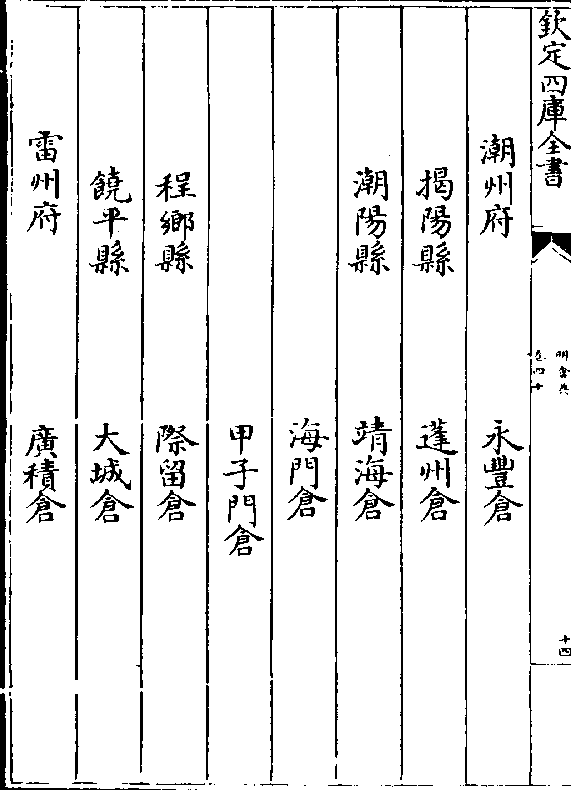 欽定四庫全書
明會典
卷四十
十四
潮州府 永豐倉
揭陽縣 蓬州倉
潮陽縣 靖海倉
海門倉
甲子門倉
程鄉縣 際留倉
饒平縣 大城倉
雷州府 廣積倉